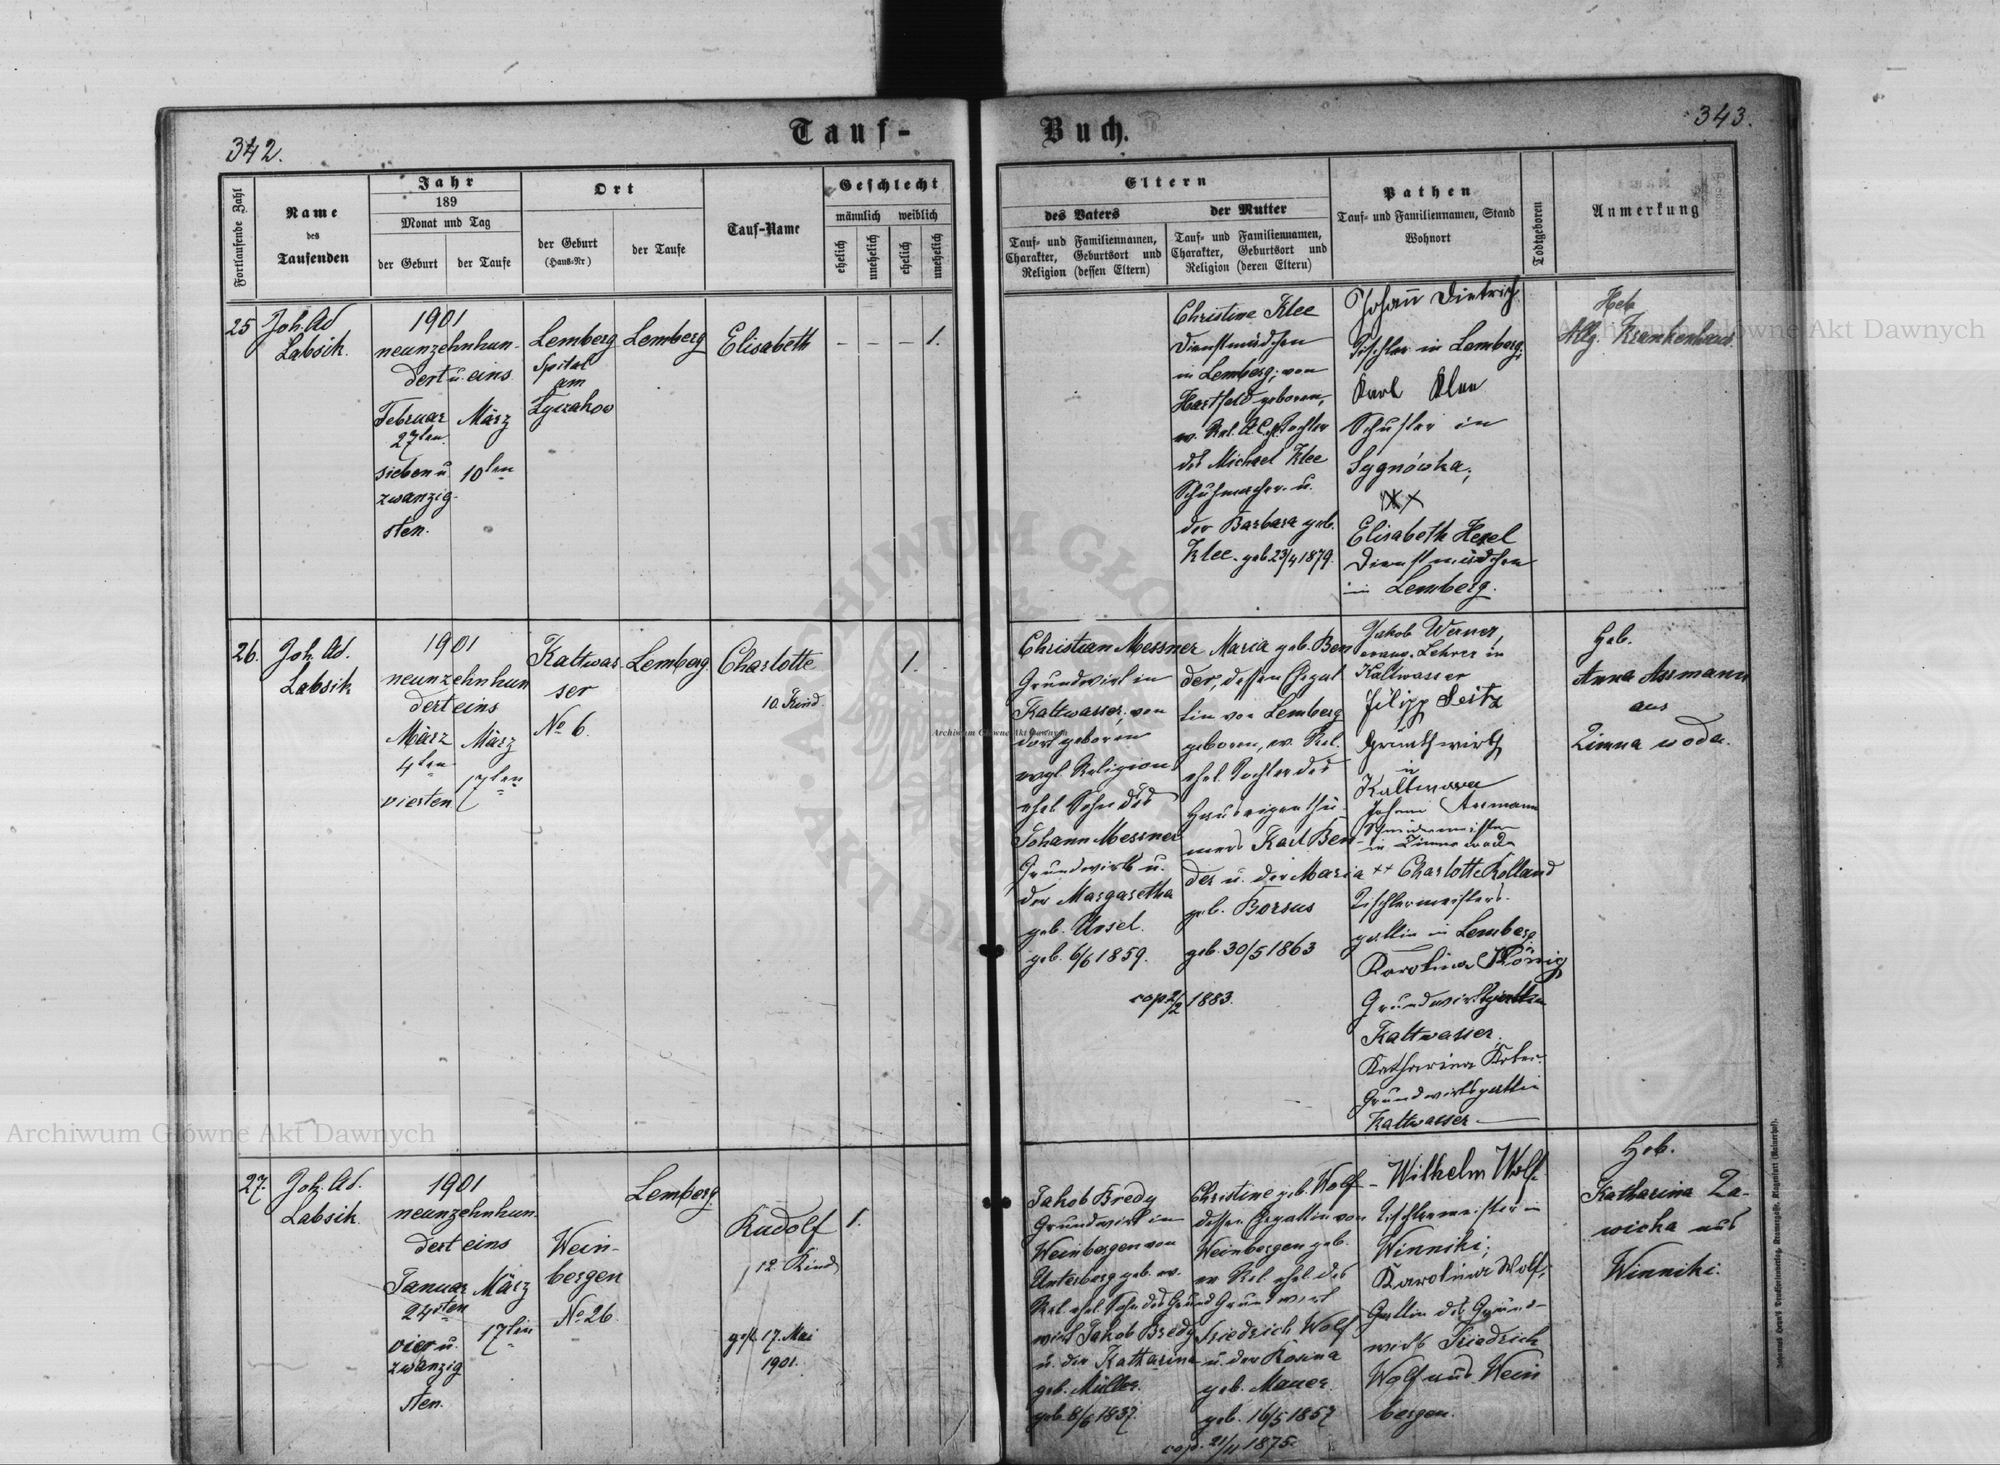 342.
Tauf-
Buch.
343.
Fortlaufende Zahl
Name
des
Taufenden
Jahr
189
Monat und Tag
der Geburt
der Taufe
Ort
der Geburt
(Haus-Nr)
der Taufe
Tauf-Name
Geschlecht
männlich
weiblich
ehelich
unehelich
ehelich
unehelich
Eltern
des Vaters
der Mutter
Tauf- und Familiennamen,
Charakter, Geburtsort und
Religion (dessen Eltern)
Tauf- und Familiennamen,
Charakter, Geburtsort und
Religion (deren Eltern)
Pathen
Tauf- und Familiennamen, Stand
Wohnort
Todtgeboren
Anmerkung
25
Joh. Ad
Labsik.
1901
neunzehnhun-
dert u. eins
Februar
27ten
sieben u
zwanzig-
sten.
März
10ten
Lemberg
Spital
am
Lyczakov
Lemberg
Elisabeth
– – – 1.
Christine Klee
Dienstmädchen
in Lemberg; von
Hartfeld geboren,
ev. Rel. A.C. Tochter
des Michael Klee
Schuhmacher u.
der Barbara geb.
Klee. geb. 23/4 1879.
Johann Dietrich
Tischler in Lemberg;
Karl Klee
Schuster in
Sygnówka;
Elisabeth Hexel
Dienstmädchen
in Lemberg.
Heb.
Allg. Krankenhaus
26.
Joh. Ad.
Labsik
1901
neunzehnhun
dert eins
März
4ten
vierten
März
17ten
Kaltwas
ser
No 6.
Lemberg
Charlotte
10. Kind.
1.
Christian Messner
Grundwirt in
Kaltwasser, von
dort geboren
evgl. Religion
ehel. Sohn des
Johann Messner
Grundwirts u.
der Margaretha
geb. Ursel.
geb. 6/6 1859.
Maria geb. Ben
der, dessen Ehegat
tin von Lemberg
geboren, ev. Rel.
ehel. Tochter des
Hauseigenthü-
mers Karl Ben-
der u. der Maria
geb. Borsus
geb. 30/5 1863
cop. 2/2 1883.
Jakob Werner,
evang. Lehrer in
Kaltwasser
Filipp Seitz
Grundwirth
in
Kaltwasser
Johann Assmann
Schneidermeister
in Zimna woda
++ Charlotte Kolland
Tischlermeisters-
gattin in Lemberg
Karolina König
Grundwirtsgattin
Kaltwasser.
Katharina
Grundwirtsgattin
Kaltwasser
Heb.
Anna Assmann
aus
Zimna woda.
27.
Joh. Ad.
Labsik.
1901
neunzehnhun-
dert eins
Januar
24sten
vier u.
zwanzig
sten.
März
17ten
Wein-
bergen
No 26.
Lemberg
Rudolf
12. Kind
gest. 17. Mai
1901.
1.
Jakob Bredy
Grundwirt in
Weinbergen von
Unterberg geb. ev.
Rel. ehel. Sohn des Grund
wirt Jakob Bredy
u. der Katharina
geb. Müller.
geb. 8/6 1837.
Christine geb. Wolf
dessen Ehegattin von
Weinbergen geb.
ev. Rel. ehel. des
Grundwirt
Friedrich Wolf
u. der Rosina
geb. Mauer.
geb. 16/5 1857
cop. 21/11 1875.
Wilhelm Wolf
Tischlermeister in
Winniki;
Karolina Wolf,
Gattin des Grund-
wirts Friedrich
Wolf aus Wein
bergen.
Heb.
Katharina Za-
wicka aus
Winniki.
Archiwum Główne Akt Dawnych
Archiwum Główne Akt Dawnych
Archiwum Główne Akt Dawnych